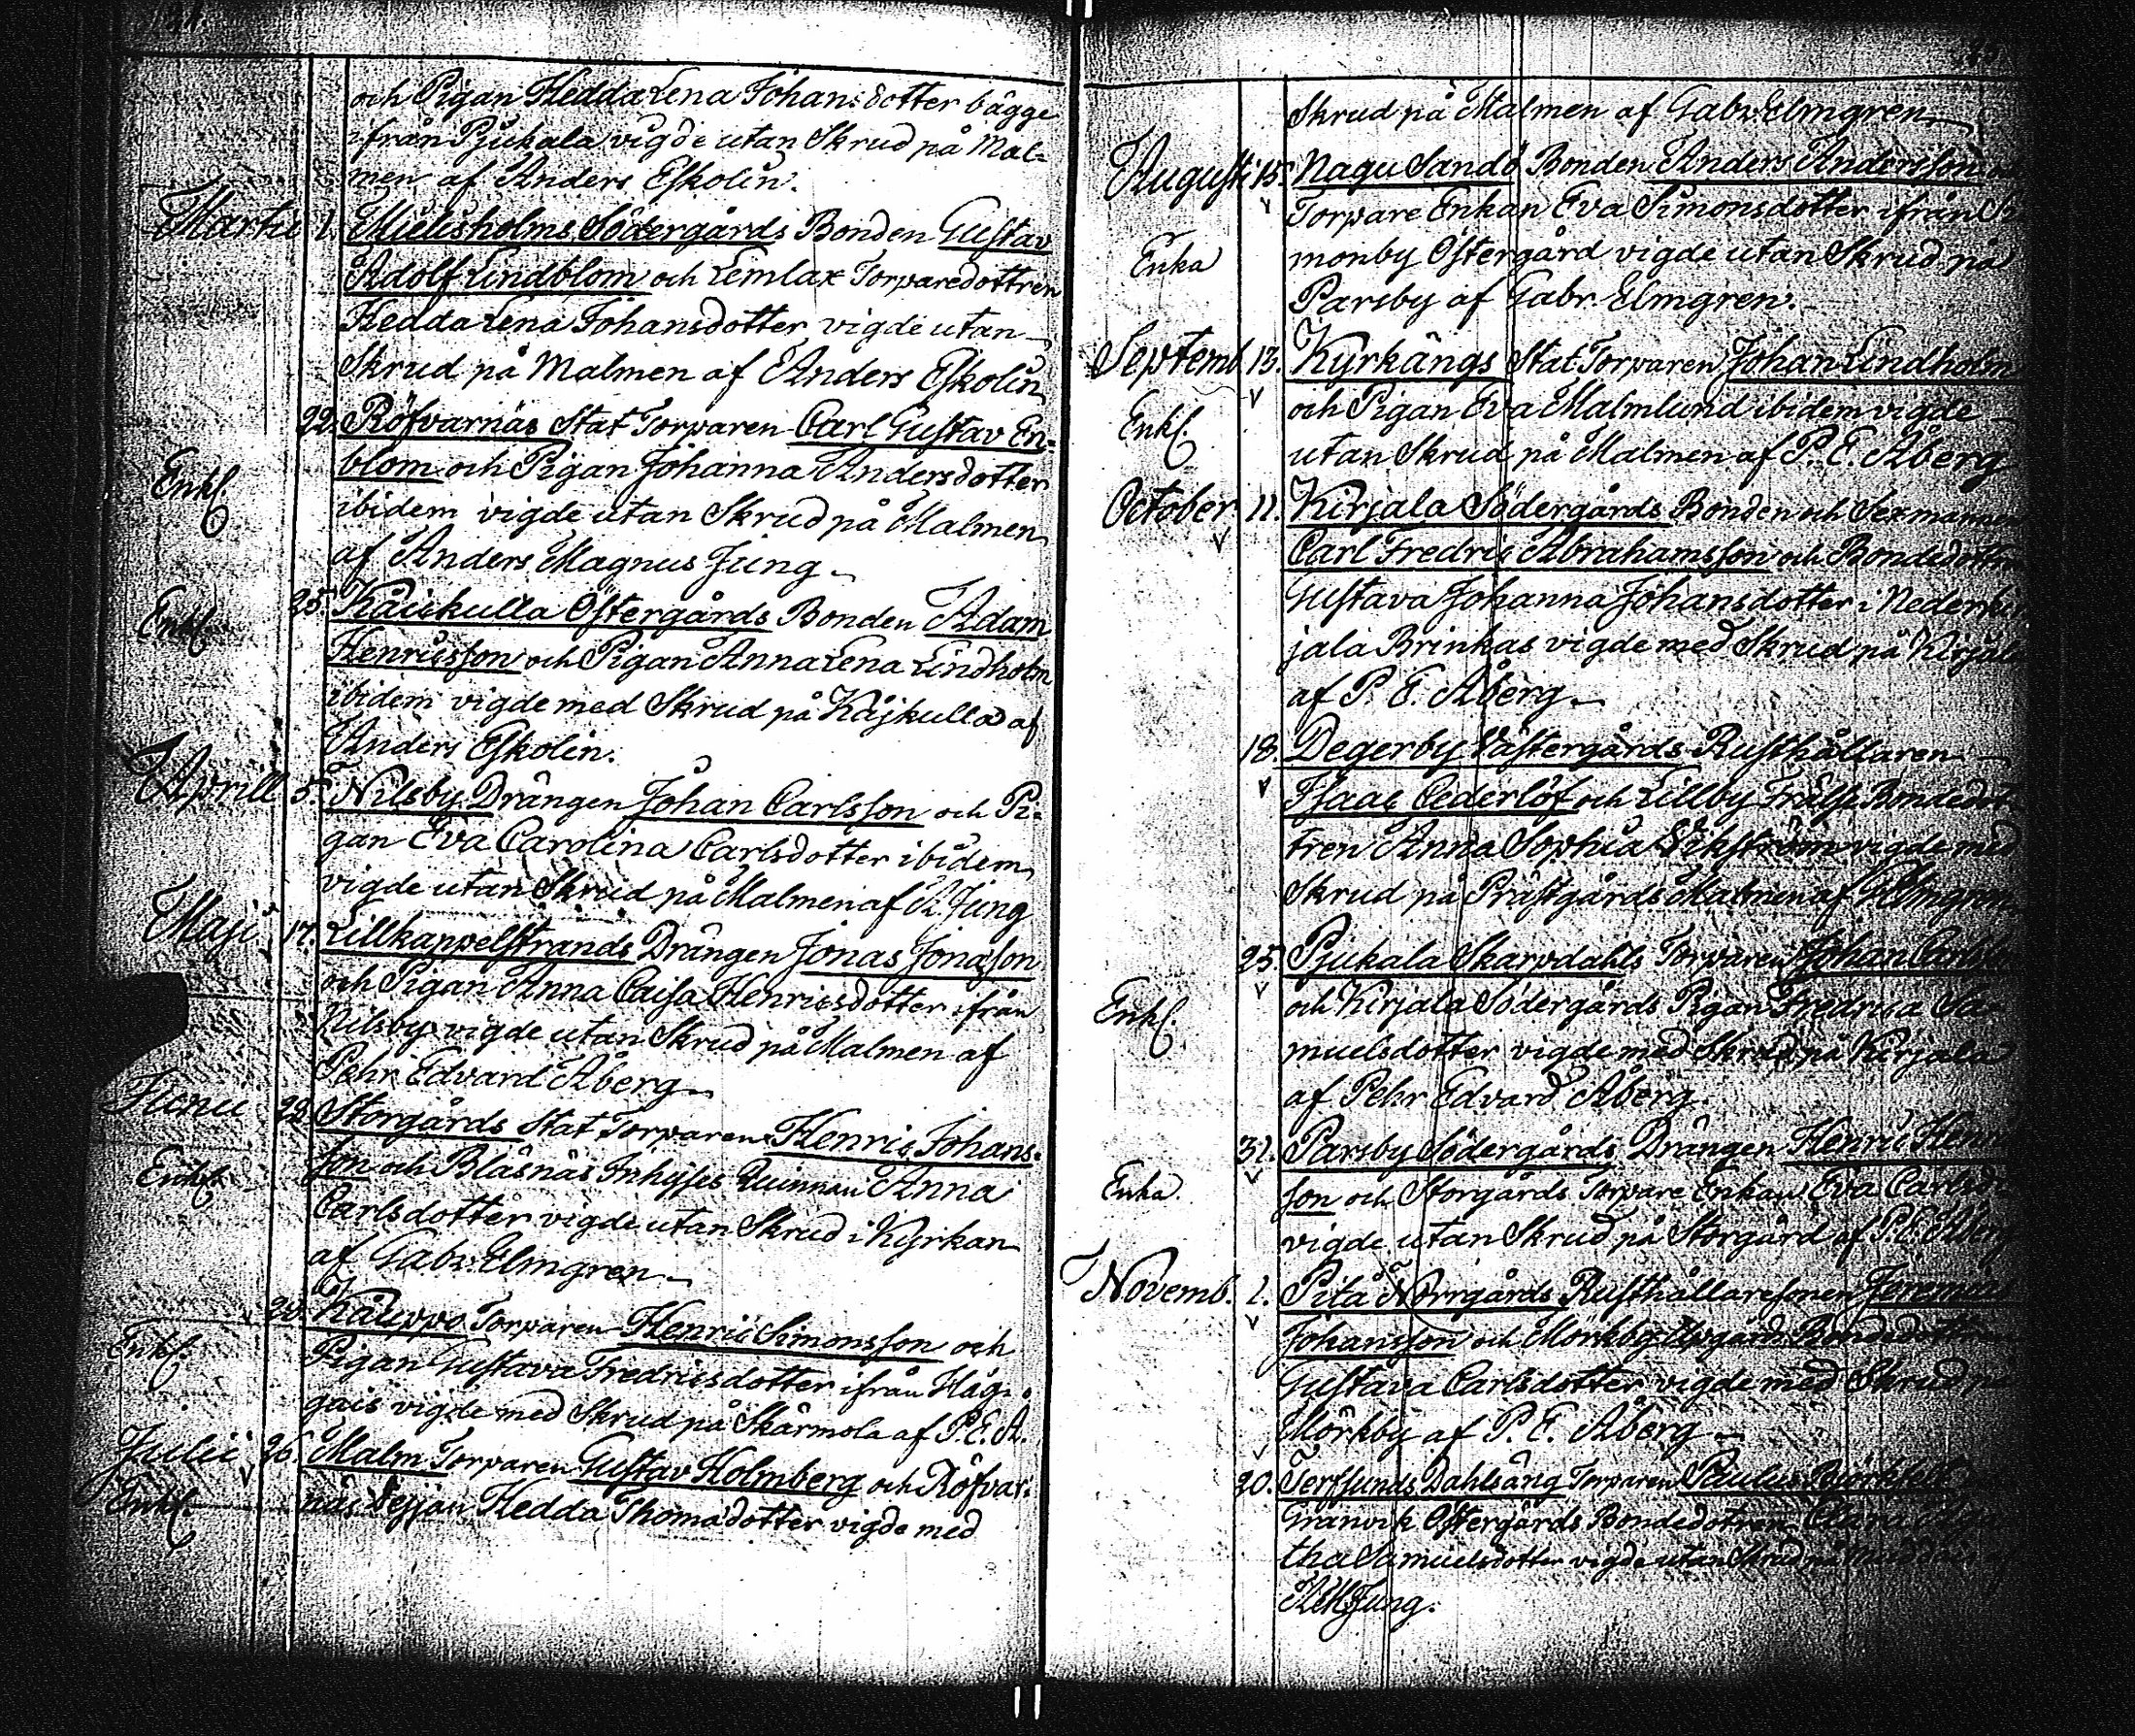 och Pigan Hedda Lena Johansdotter bägge
ifrån Pjukala vigde utan Skrud på Mal=
men af Anders Eskolin.
Martii 1. Mielisholms Södergårds Bonden Gustav
Adolf Lindblom och Lemlax Torparedottren
Hedda Lena Johansdotter vigde utan
Skrud på Malmen af Anders Eskolin
22. Röfvarnäs Stat Torparen Carl Gustav En=
Enkl. blom och Pigan Johanna Andersdotter
ibidem vigde utan Skrud på Malmen
af Anders Magnus Jung
Enkl. 25. Kåickulla Östergårds Bonden Adam
Henricsson och Pigan Anna Lena Lindholm
ibidem vigde med Skrud på Kåjkulla af
Anders Eskolin.
Aprill 5. Nilsby Drängen Johan Carlsson och Pi=
gan Eva Carolina Carlsdotter ibidem
vigde utan Skrud på Malmen af A. Jung
Maji 17. Lillkappelstrands Drängen Jonas Jonasson
och Pigan Anna Caisa Henricsdotter ifrån
Nilsby vigde utan Skrud på Malmen af
Pehr Edvard Åberg
Junii Storgårds Stat Torparen Henric Johans=
Enkl. son och Bläsnäs Inhyses Quinnan Anna
Carlsdotter vigde utan Skrud i Kyrkan
af Gabr. Elmgren
Torparen Henric Simonsson och
Enkl. Pigan Gustava Fredricsdotter ifrån Häg=
gais vigde med Skrud på Skärmola af P. E. Å.
Julii 26. Malm Torparen Gustav Holmberg och Röfvar=
Enkl. näs Hedda Thomadotter vigde med
Skrud på Malmen af Gabr. Elmgren
Augusti 15. Nagu Sandö Bonden Anders Andersson
Torpare Enkan Eva Simonsdotter ifrån
Enka monby Östergård vigde utan Skrud på
Parsby af Gabr. Elmgren.
Septemb. 13. Kyrkängs Stat Torparen Johan Lindholm
Enkl. och Pigan Eva Malmlund ibidem vigde
utan Skrud på Malmen af P. E. Åberg
October 11. Kirjala Södergårds Bonden och Sexmannen
Carl Fredric Abrahamsson och Bondedottren
Gustava Johanna Johansdotter i
jala Brinkas vigde med Skrud på Kirjala
af P. E. Åberg
18. Degerby Västergårds Rusthållaren
Isaac Cederlöf och Lillby Frälse Bondedot
tren Anna Sophia Vikström vigde med
Skrud på Prästgårds Malmen af Elmgren
25. Pjukala Skarpdahls Torparen Johan
Enkl. och Kirjala Södergårds Pigan Fredrica Sa=
muelsdotter vigde med Skrud på Kirjala
af Pehr Edvard Åberg.
31. Parsby Södergårds Drängen Henric
Enka. son och Storgårds Torpare Enkan Eva
vigde utan Skrud på Storgård af P. E. Åberg
Novemb. 1. Norrgårds Rusthållaresonen
Johansson och Mörkby Bondedottren
Gustava Carlsdotter vigde med Skrud på
Mörkby af P. E. Åberg
20. Terfsunds Dahlsäng Torparen Paulus
Granvik Östergårds Bondedotren Clara
tha Samuelsdotter vigde utan Skrud på
Jung.